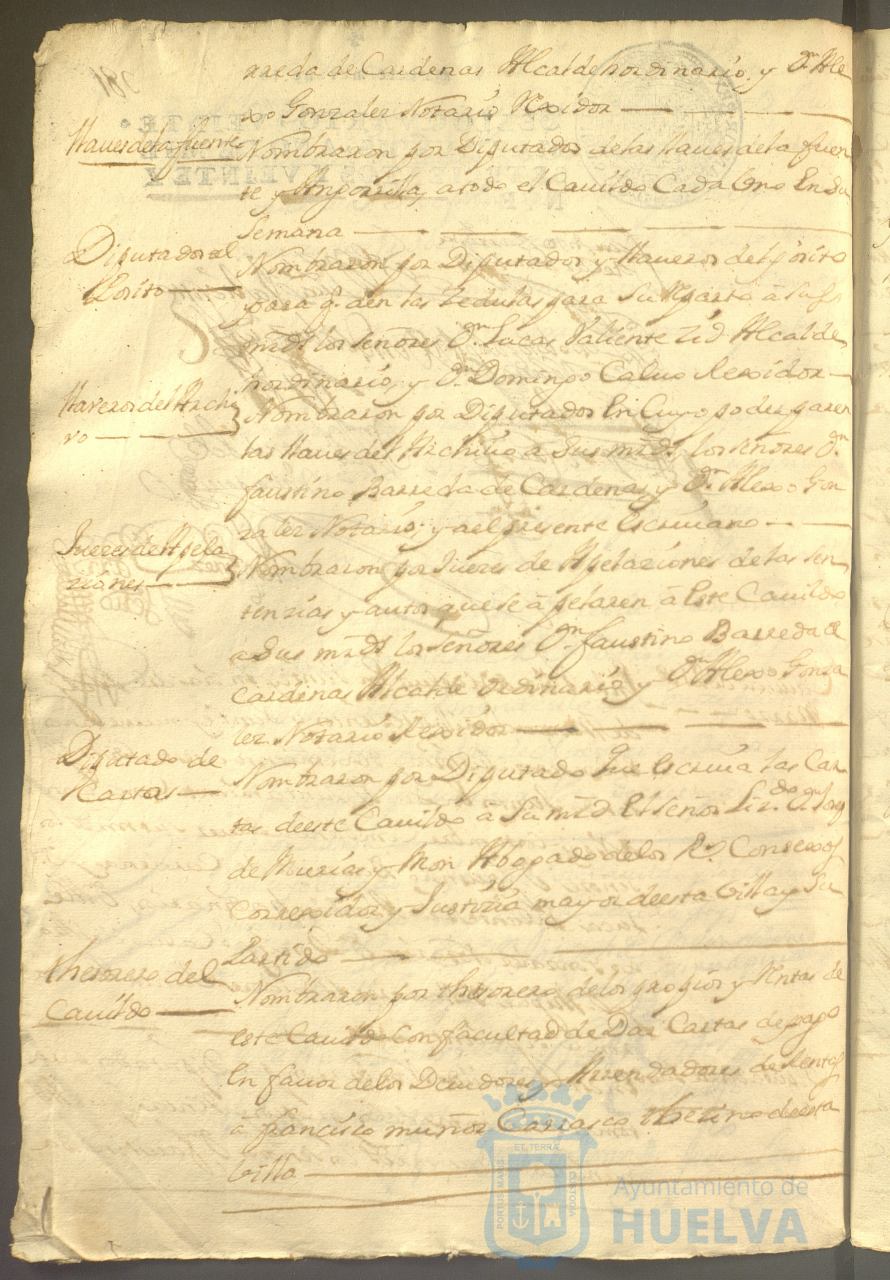 rreda de Cardenas Alcalde hordinario, y Dn Ale
xo Gonzalez Notario Rexidor
Llaves de la fuente
Nombraron por Diputados de las llaves de la fuen
te y Angorrilla, a todo el Cavildo Cada Uno En Su
Semana
Diputados al
Posito
Nombraron por Diputados y llaveros del pósito
para q. den las Zedulas para Su Rparto â Sus
mrds los Señores Dn Lucas Valiente Zid Alcalde
hordinario, y Dn Domingo Calvo Rexidor
llaveros del Archi
vo
Nombraron por Diputados En Cuyo poder paren
las llaves del Archivo â Sus mrds los Señores Dn
faustino Barreda de Cardenas y Dn Alexo Gon
zalez Notario, y a el presente Escrivano
Juezes de Apela
ziones
Nombraron por Juezes de Apelaziones de las Sen
tenzias y autos que se âpelaren â Este Cavildo
a Sus mrds los Señores Dn faustino Barreda de
Cardenas Alcalde Ordinario y Dn Alexo Gonza
lez Notario Rexidor
Diputado de
Cartas
Nombraron por Diputado que Escriva las Car
tas de este Cavildo a Su mrd El Señor Lizdo Dn
de Murias y Mon Abogado de los Rs Consexos
Correxidor y Justizia mayor de esta Villa y Su
Partido
thesorero del
Cavildo
Nombraron por thesorero de los propios y Rentas de
este Cavildo Con facultad de Dar Cartas de pago
En favor de los Deudores y Arrendadores de Rentas
â francisco muñoz Carrasco Vezino de esta
Villa
PORTUS MARIS
ET TERRÆ
CUSTODIA
Ayuntamiento de
HUELVA